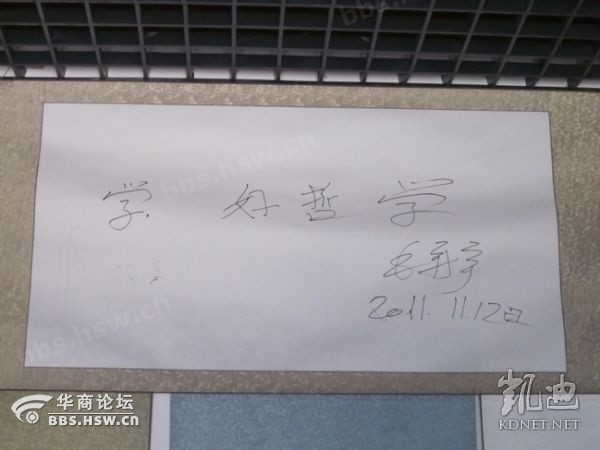 学 好哲学
毛新宇
2011.11.12日
bbs.hsw.cn
bbs.hsw.cn
bbs.hsw.cn
华商论坛
BBS.HSW.CN
凯迪
KDNET.NET